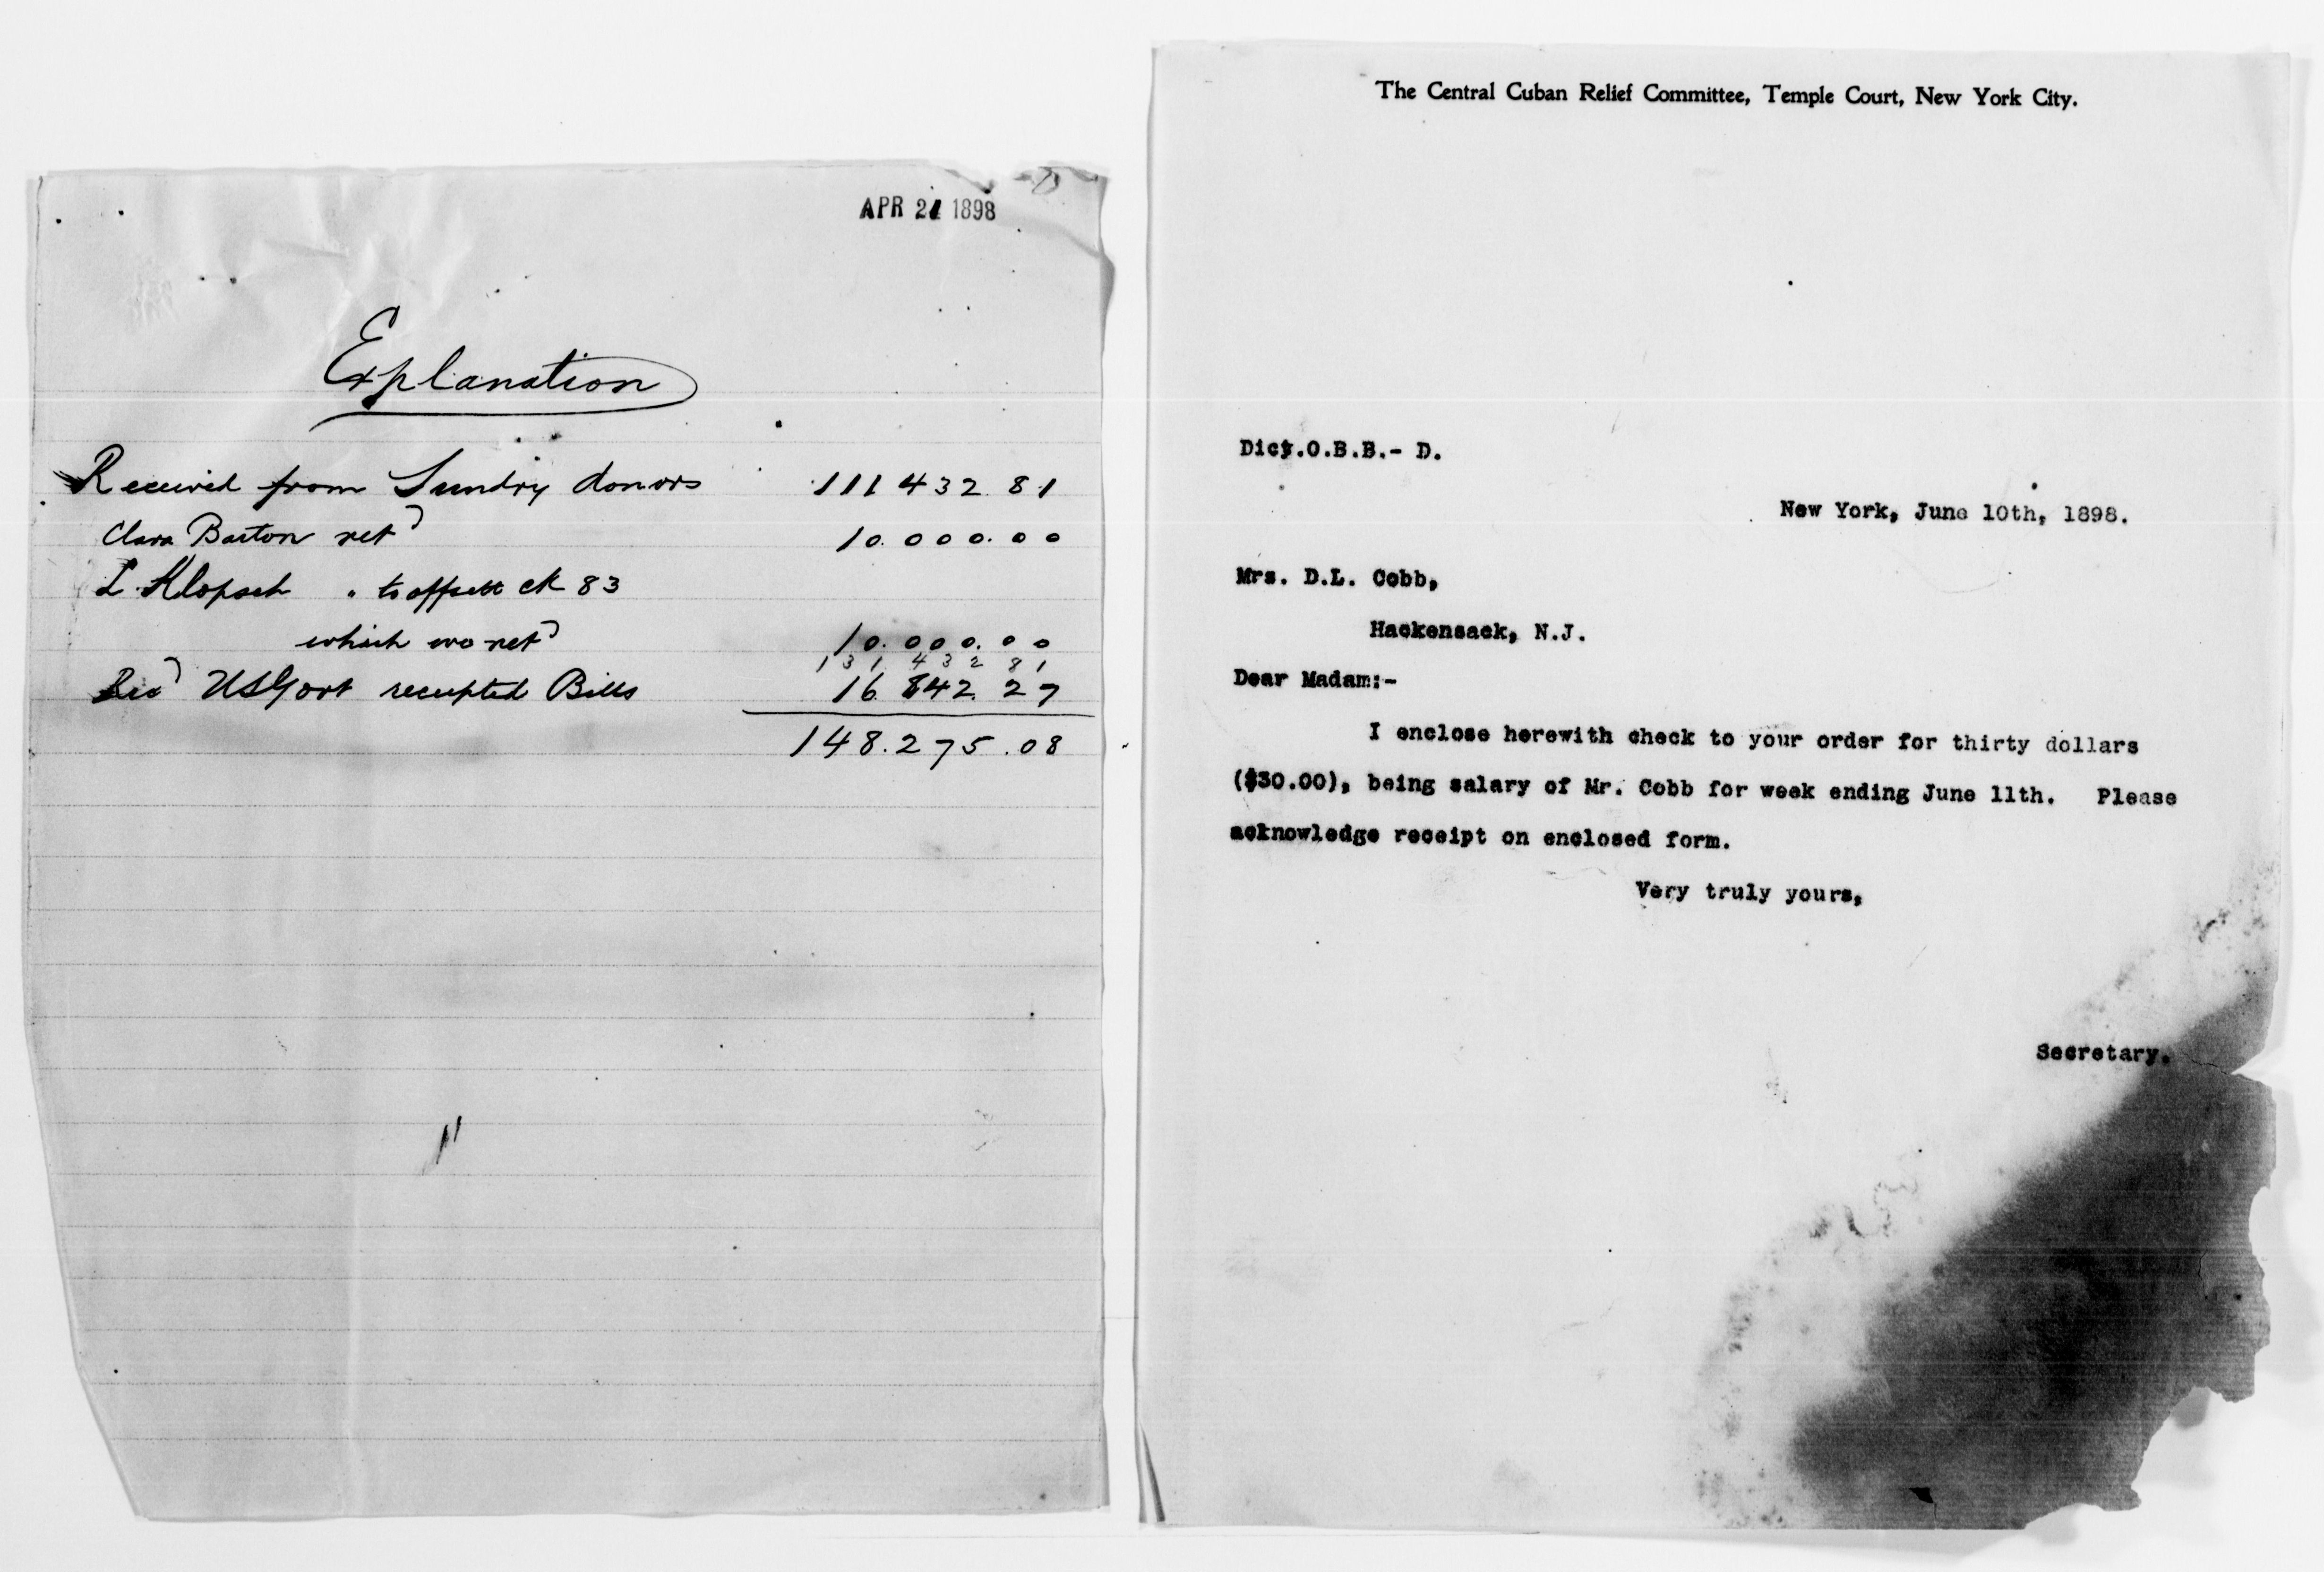 APR 21 1898
Explanation
Received from Sundry donors 111 432 81
Clara Barton retd 10.000.00
L Klopsch " to offsett ck 83
which we retd 10.000.00
131 432 81
Recd US Govt receipted Bills 16 842. 27
148.275.08
The Central Cuban Relief Committee, Temple Court, New York City.
Dict.O.B.B.- D.
New York, June 10th, 1898.
Mrs. D.L. Cobb,
Hackensack, N.J.
Dear Madam:-
I enclose herewith check to your order for thirty dollars
($30.00), being salary of Mr. Cobb for week ending June 11th. Please
acknowledge receipt on enclosed form.
Very truly yours,
Secretary.